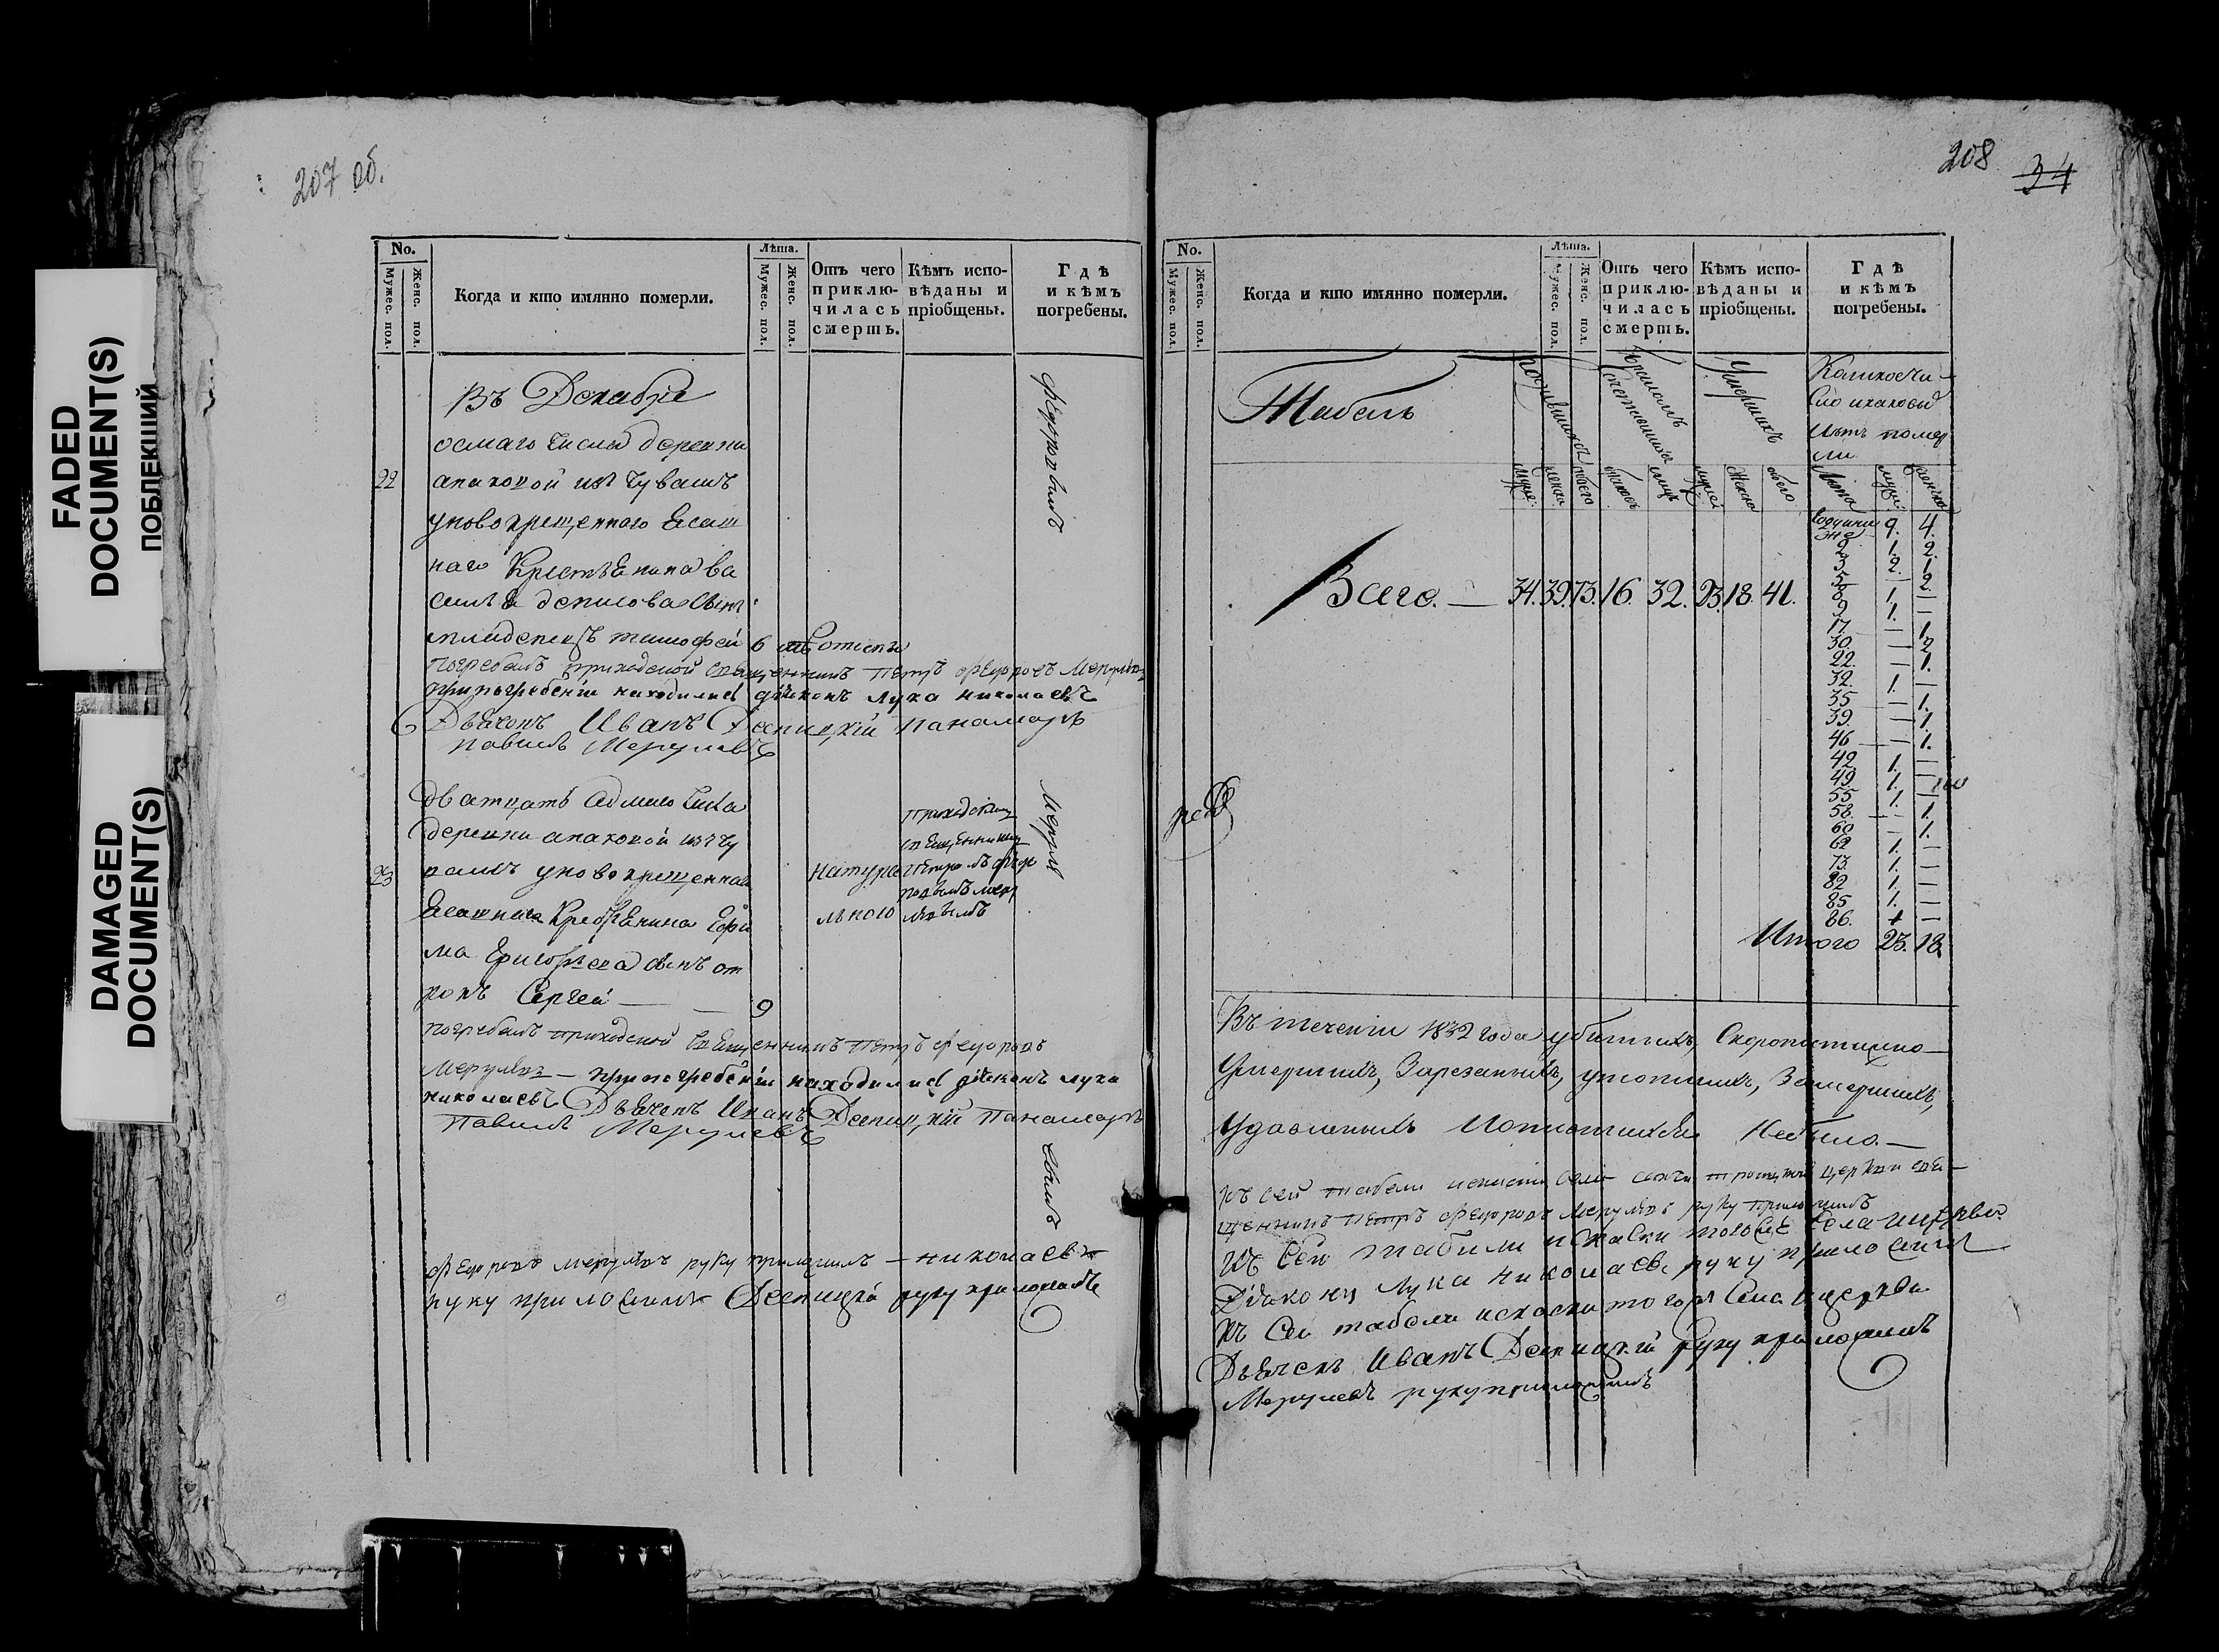 FADED
DOCUMENT(S)
ПОБЛЕКШИЙ
DAMAGED
DOCUMENT(S)
207 об.
No.
Мужес. пол.
Женс. пол.
Когда и кто имянно померли.
Лѣта.
Мужес. пол.
Женс. пол.
Отъ чего приключилась смерть.
Кѣмъ исповѣданы и пріобщены.
Гдѣ и кѣмъ погребены.
Въ Декабрѣ
осмаго числа деревни
22 апаковой изъ чувашъ
уновокрещеннаго Ясаш
наго Крестьянина ва
силья денисова сынъ
младенецъ тимофей 6 отоспы
погребалъ приходской священникъ петръ федоровъ
при погребеніи находились діаконъ лука николаевъ
Дьячокъ Иванъ Десницкій панамарь
павелъ
дватцать седмаго числа
деревни апаковой изъ чу
23 вашъ уновокрещеннаго
Ясашнаго Крестьянина Ефи
ма Григорьева сынъ от
рокъ Сергей — 9
натура
льного
приходскимъ
священникомъ
петромъ федо
ровымъ
погребалъ приходской священникъ петръ федоровъ
при погребеніи находились діаконъ лука
николаевъ Дьячекъ Иванъ Десницкій панамарь
павелъ
федоровымъ
федоровъ руку приложилъ — николаевъ
руку приложилъ Десницкій руку приложилъ
208
34
No.
Мужес. пол.
Женс. пол.
Когда и кто имянно померли.
Лѣта.
Мужес. пол.
Женс. пол.
Отъ чего приключилась смерть.
Кѣмъ исповѣданы и пріобщены.
Гдѣ и кѣмъ погребены.
Табель
родившихся
бракомъ сочетавшихся
Умершихъ
Коликое чи-
сло и каковыхъ
лѣтъ помер
ли
Всего. — 34. 39. 73. 16. 32. 23. 18. 41.
Лѣта
9. 4.
2 1. 2.
3 2. 1
5 — 2
8 1. —
9 1. —
17. — 1.
30. — 2
22. — 1.
32. 1. —
35 — 1.
39. — 1.
46 — 1.
42 1. —
49. 1. —
55 1. —
58. — 1.
60 — 1.
62 1. —
73. 1. —
82 1. —
85 1. —
86. 1 —
Итого 23. 18.
Въ теченіи 1832 года убитыхъ, Скоропостижно
Умершихъ, Зарезанныхъ, утопшихъ, Замерзшихъ,
Удавленныхъ Небыло. —
къ сей табели церкви свя-
щенникъ петръ федоровъ руку приложилъ
Къ сей табели тогоже села церкви
Діаконъ Лука николаевъ руку приложилъ
Къ сей табели тогожъ села церкви
Дьячекъ Иванъ Десницкій руку приложилъ
руку приложилъ